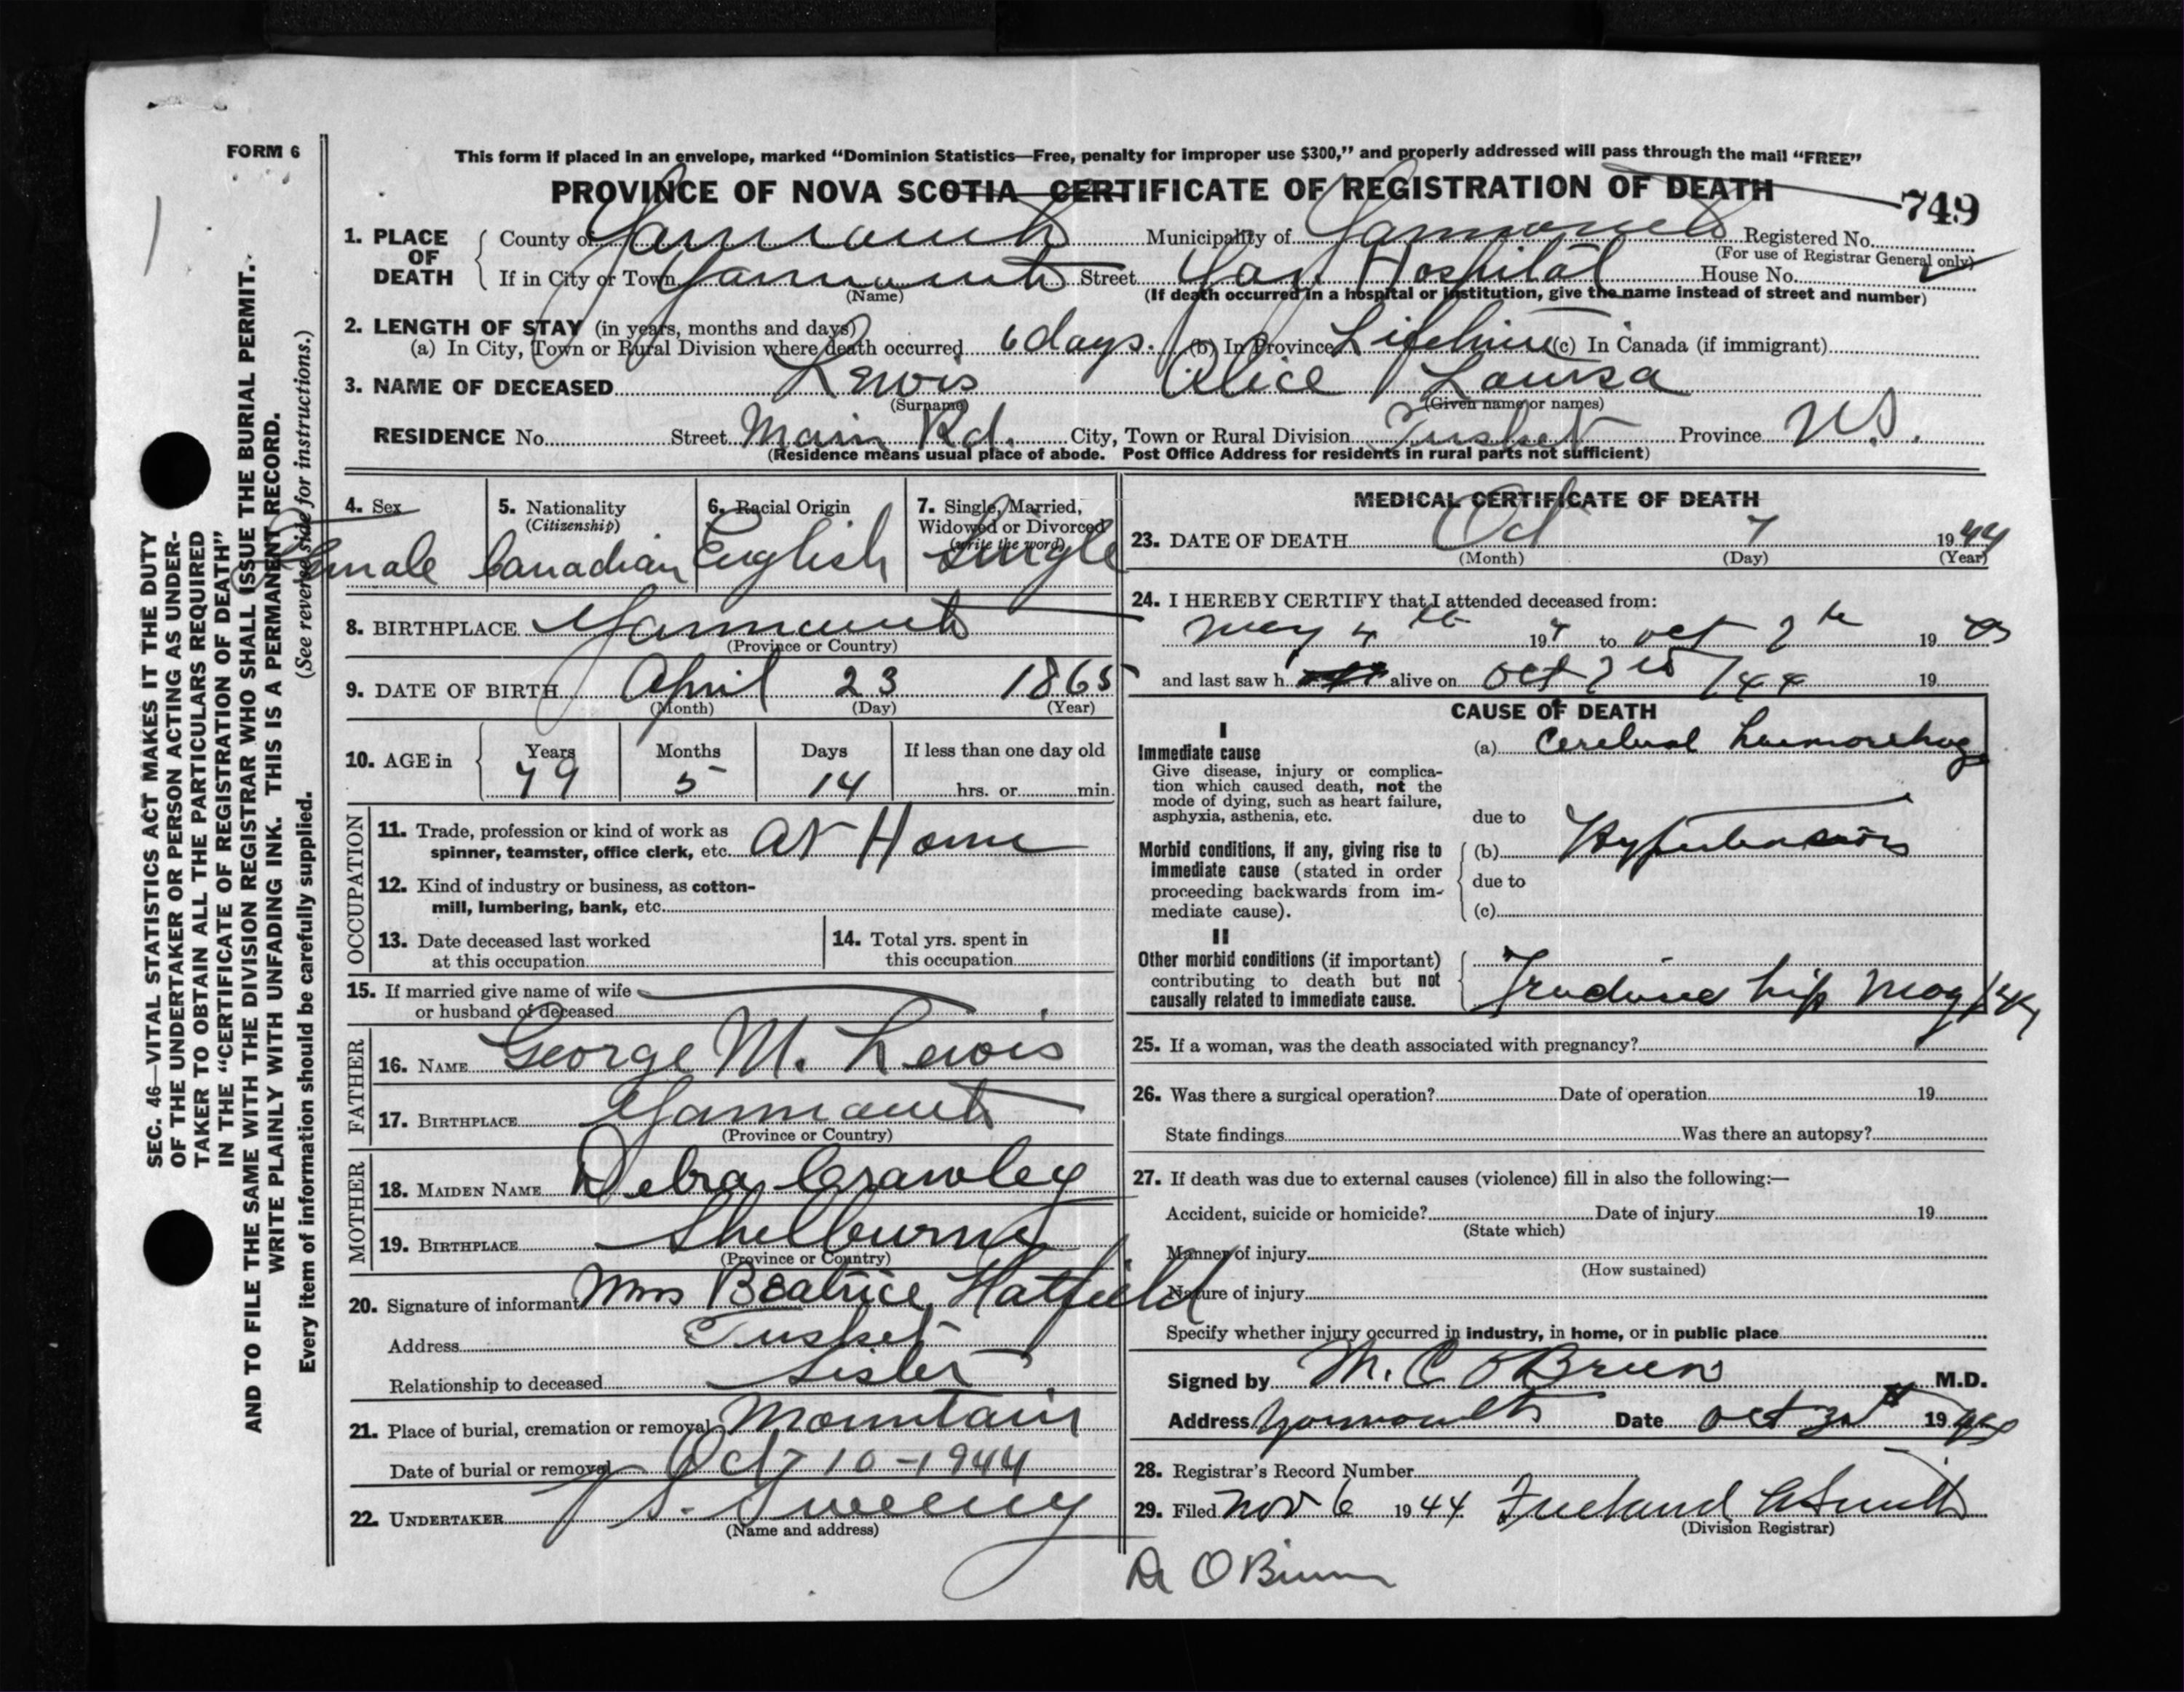 FORM 6
This form if placed in an envelope, marked "Dominion Statistics—Free, penalty for improper use $300," and properly addressed will pass through the mail "FREE"
PROVINCE OF NOVA SCOTIA CERTIFICATE OF REGISTRATION OF DEATH
749
1. PLACE OF DEATH
County of Yarmouth Municipality of Yarmouth Registered No.
(For use of Registrar General only)
If in City or Town Yarmouth Street Yar. Hospital House No.
(Name) (If death occurred in a hospital or institution, give the name instead of street and number)
2. LENGTH OF STAY (in years, months and days)
(a) In City, Town or Rural Division where death occurred 6 days. (b) In Province Lifetime (c) In Canada (if immigrant)
3. NAME OF DECEASED Lewis Alice Louisa
(Surname) (Given name or names)
RESIDENCE No. Street Main Rd. City, Town or Rural Division Tusket Province N.S.
(Residence means usual place of abode. Post Office Address for residents in rural parts not sufficient)
4. Sex
Female
5. Nationality
(Citizenship)
Canadian
6. Racial Origin
English
7. Single, Married,
Widowed or Divorced
(write the word)
Single
8. BIRTHPLACE Yarmouth
(Province or Country)
9. DATE OF BIRTH April 23 1865
(Month) (Day) (Year)
10. AGE in
Years Months Days If less than one day old
79 5 14 hrs. or min.
OCCUPATION
11. Trade, profession or kind of work as
spinner, teamster, office clerk, etc. At Home
12. Kind of industry or business, as cotton-
mill, lumbering, bank, etc.
13. Date deceased last worked
at this occupation
14. Total yrs. spent in
this occupation
15. If married give name of wife
or husband of deceased
FATHER
16. NAME George M. Lewis
17. BIRTHPLACE Yarmouth
(Province or Country)
MOTHER
18. MAIDEN NAME Debra Crawley
19. BIRTHPLACE Shelburne
(Province or Country)
20. Signature of informant Mrs Beatrice Hatfield
Address Tusket
Relationship to deceased Sister
21. Place of burial, cremation or removal Mountain
Date of burial or removal Oct 10-1944
22. UNDERTAKER S. Sweeny
(Name and address)
MEDICAL CERTIFICATE OF DEATH
23. DATE OF DEATH Oct 7 1944
(Month) (Day) (Year)
24. I HEREBY CERTIFY that I attended deceased from:
May 4 th 19 to Oct 19
and last saw h alive on Oct 7 /44 19
CAUSE OF DEATH
I
Immediate cause
Give disease, injury or complica-
tion which caused death, not the
mode of dying, such as heart failure,
asphyxia, asthenia, etc.
(a) Cerebral Haemorrhage
due to
Morbid conditions, if any, giving rise to
immediate cause (stated in order
proceeding backwards from im-
mediate cause).
(b) Hypertension
due to
(c)
II
Other morbid conditions (if important)
contributing to death but not
causally related to immediate cause.
Fractured hip May/44
25. If a woman, was the death associated with pregnancy?
26. Was there a surgical operation? Date of operation 19
State findings Was there an autopsy?
27. If death was due to external causes (violence) fill in also the following:—
Accident, suicide or homicide? Date of injury 19
(State which)
Manner of injury
(How sustained)
Nature of injury
Specify whether injury occurred in industry, in home, or in public place
Signed by M. C OBrien M.D.
Address Yarmouth Date Oct 19
28. Registrar's Record Number
29. Filed Nov 6 1944 Freeland A Smith
(Division Registrar)
Dr OBrien
SEC. 46—VITAL STATISTICS ACT MAKES IT THE DUTY
OF THE UNDERTAKER OR PERSON ACTING AS UNDER-
TAKER TO OBTAIN ALL THE PARTICULARS REQUIRED
IN THE "CERTIFICATE OF REGISTRATION OF DEATH"
AND TO FILE THE SAME WITH THE DIVISION REGISTRAR WHO SHALL ISSUE THE BURIAL PERMIT.
WRITE PLAINLY WITH UNFADING INK. THIS IS A PERMANENT RECORD.
Every item of information should be carefully supplied. (See reverse side for instructions.)